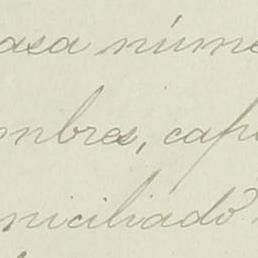 asa núme
mbres, cap
niciliado